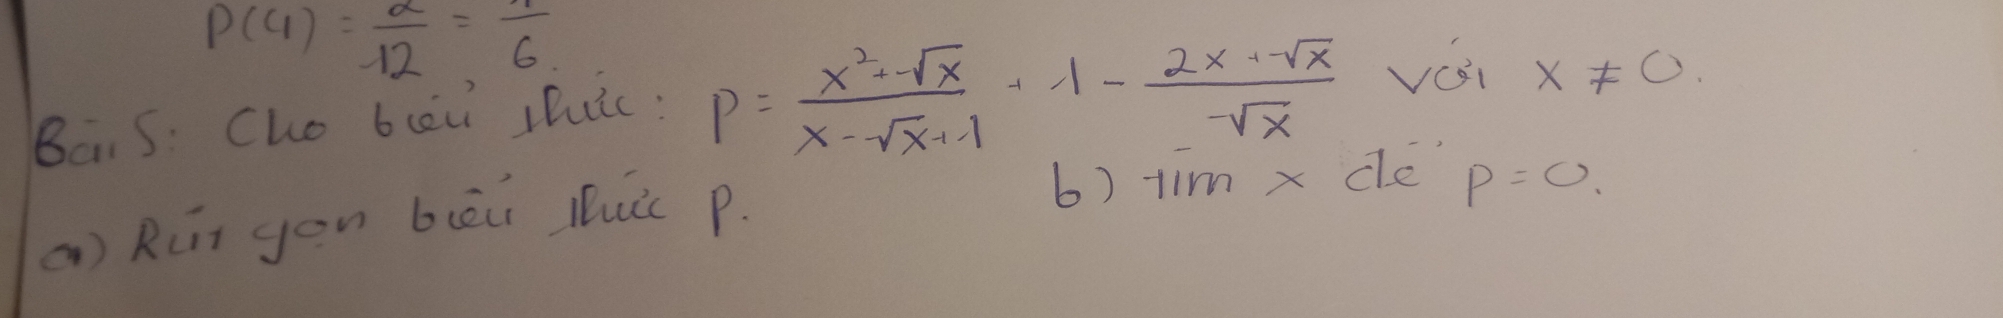 P(4) = 2/12 = 1/6.
Bài 5: Cho biểu thức: P = (x² + √x)/(x - √x + 1) + 1 - (2x + √x)/√x với x ≠ 0.
a) Rút gọn biểu thức P. b) Tìm x để P = 0.